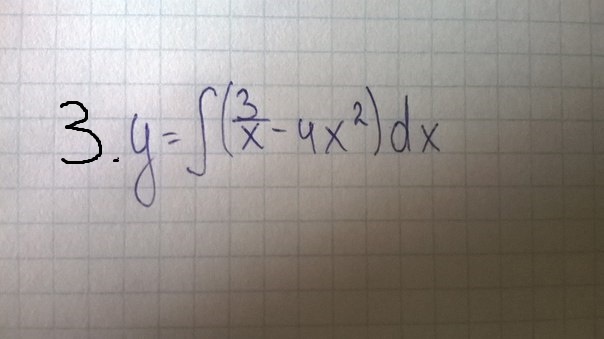 3. y = ∫(3/x - 4x²)dx